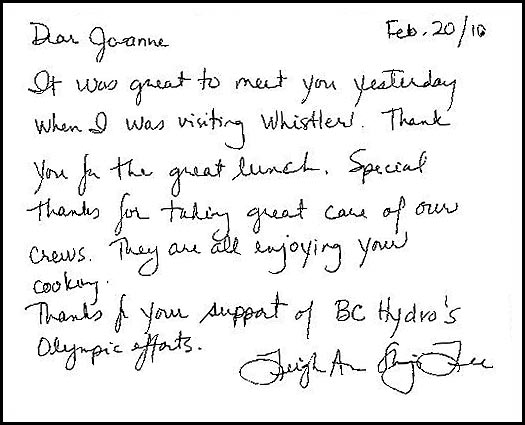 Dear Joanne
Feb. 20/10
It was great to meet you yesterday
when I was visiting Whistler. Thank
you for the great lunch. Special
thanks for taking great care of our
crews. They are all enjoying your
cooking.
Thanks for your support of BC Hydro's
Olympic efforts.
Leigh Ann